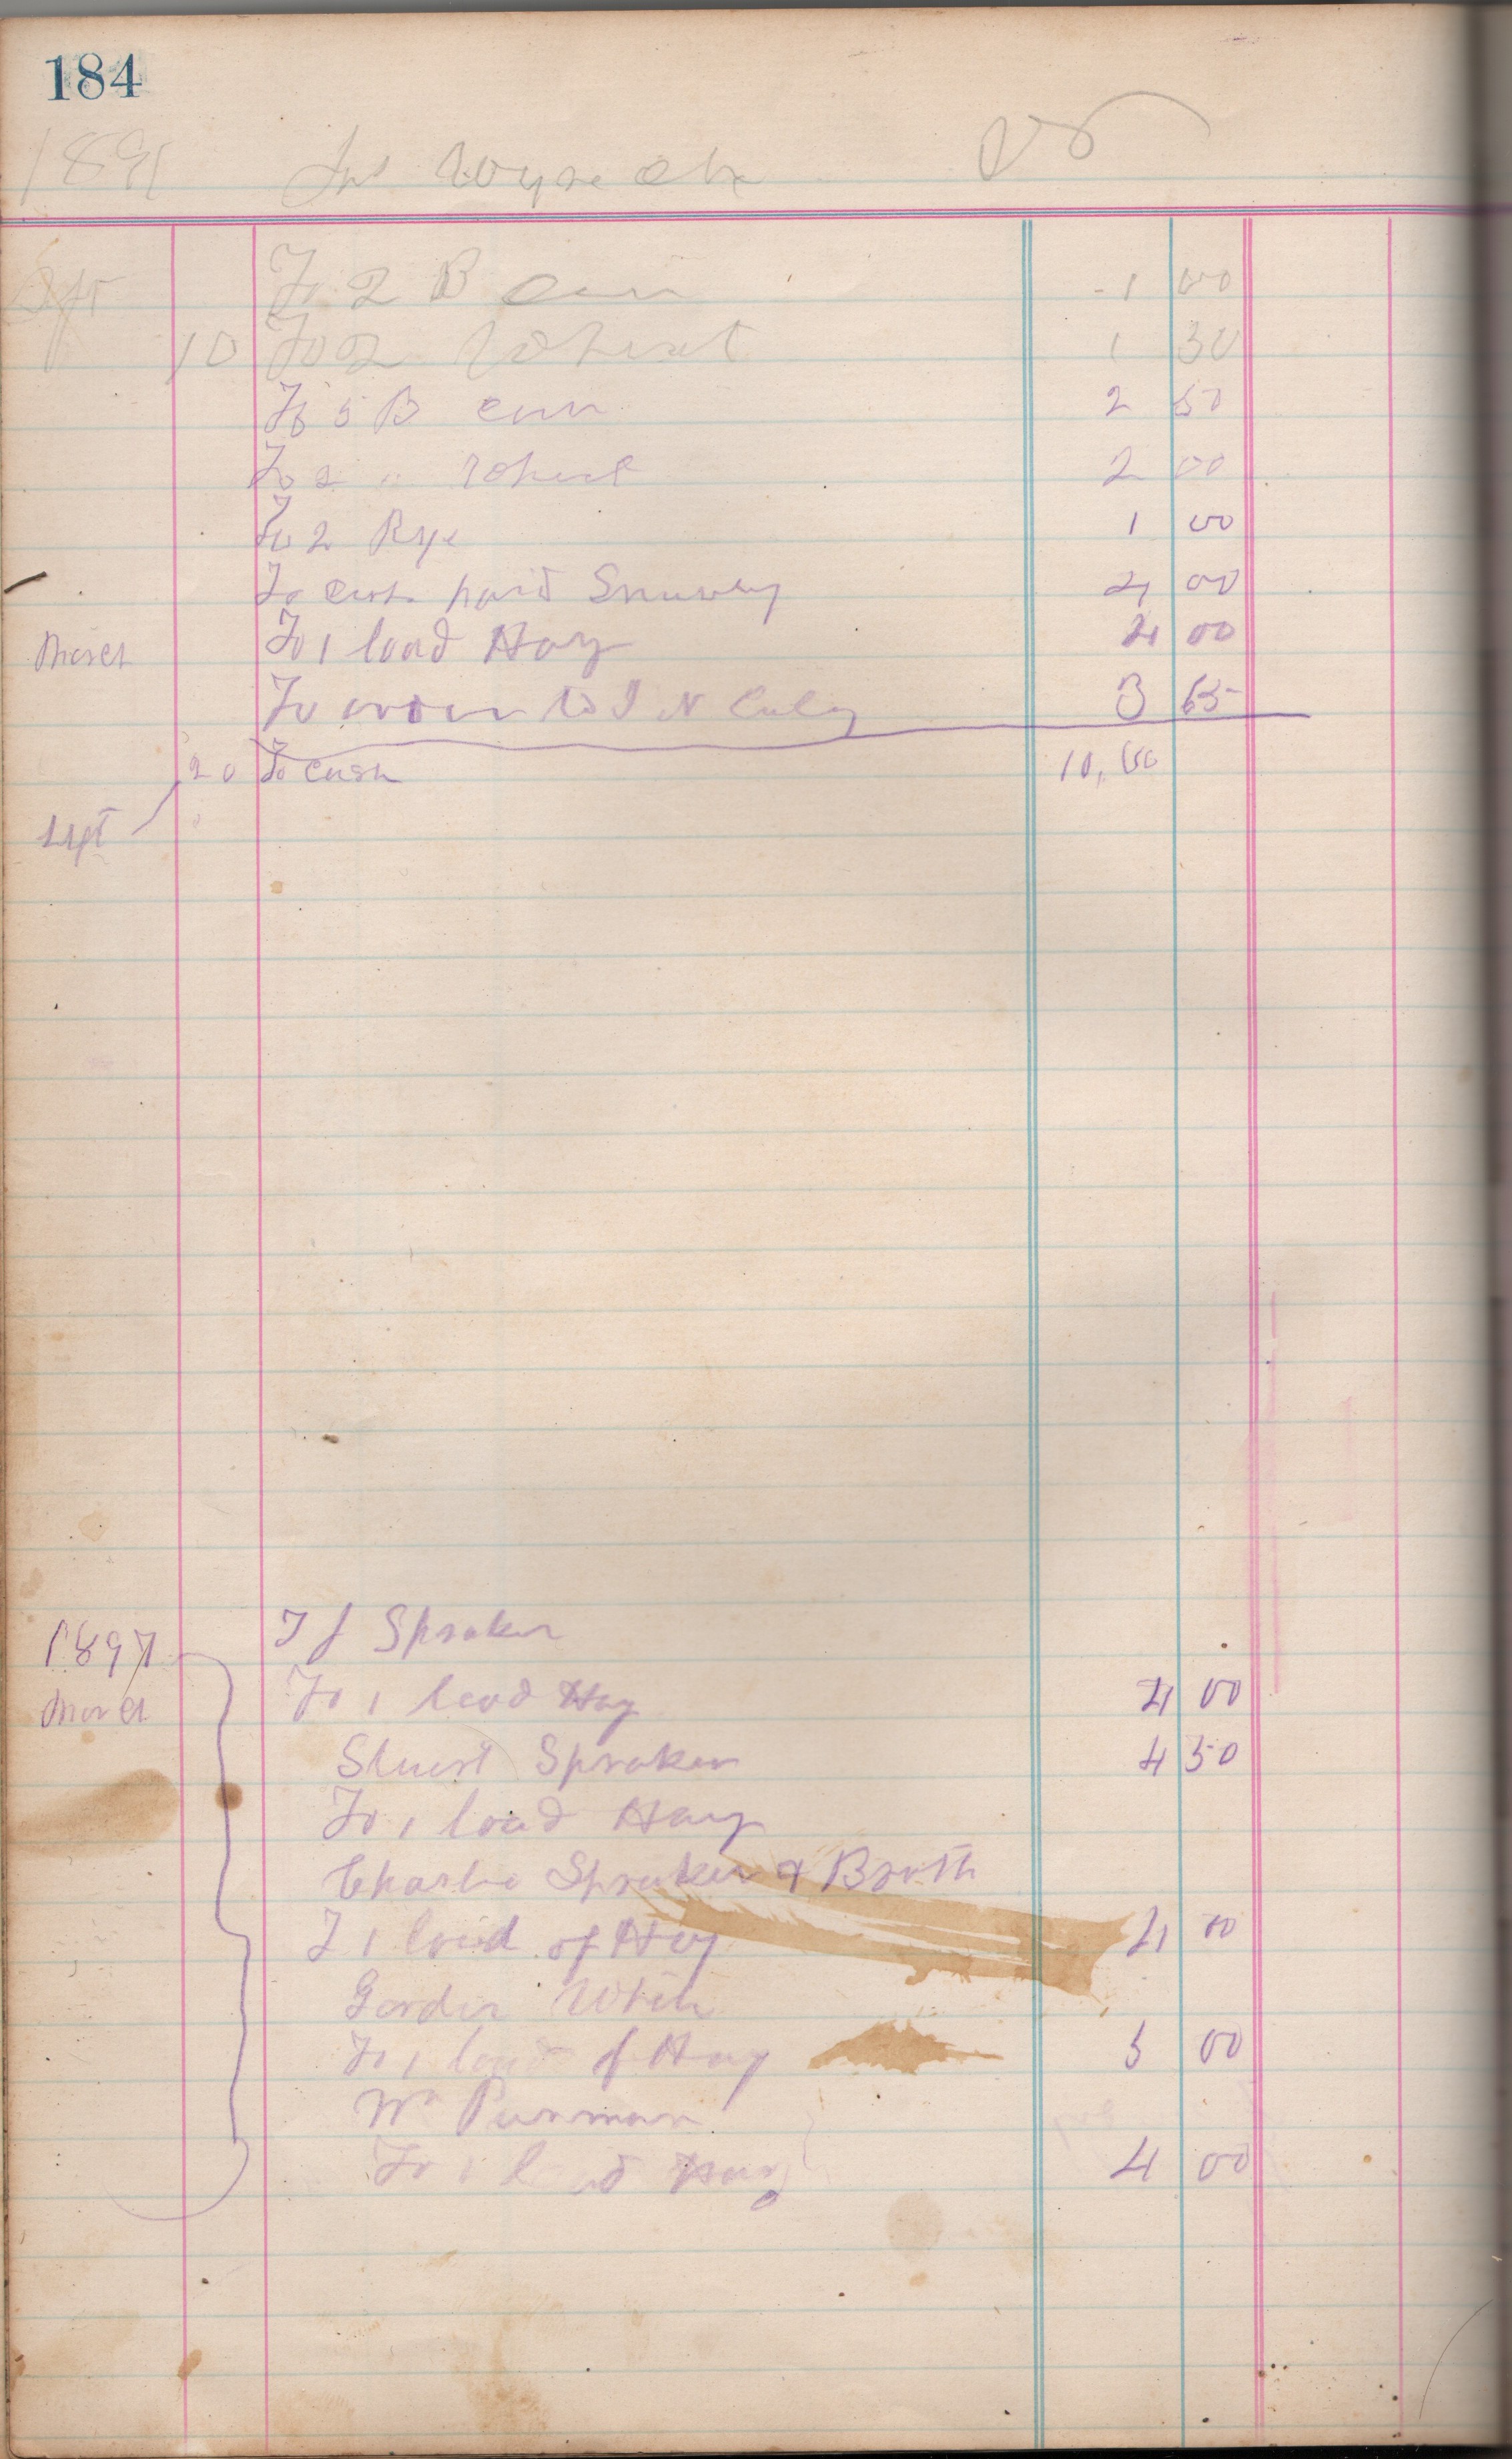 184
1896 Jno Wyrick Dr
Spt To 2 B corn 1 00
10 To 2 Wheat 1 30
To 5 B corn 2 50
To 2 " Wheat 2 00
To 2 Rye 1 00
To cash paid 4 00
March To 1 load Hay 4 00
To order to I N 3 65
20 To cash 10,00
Sept
1897 T J Spraker
March To 1 load Hay 4 00
Stuart Spraker 4 50
To 1 load Hay
Charlie Spraker & Broth
T 1 load of Hay 4 00
Gorder
To 1 load of Hay 5 00
Wm
To 1 load Hay 4 00